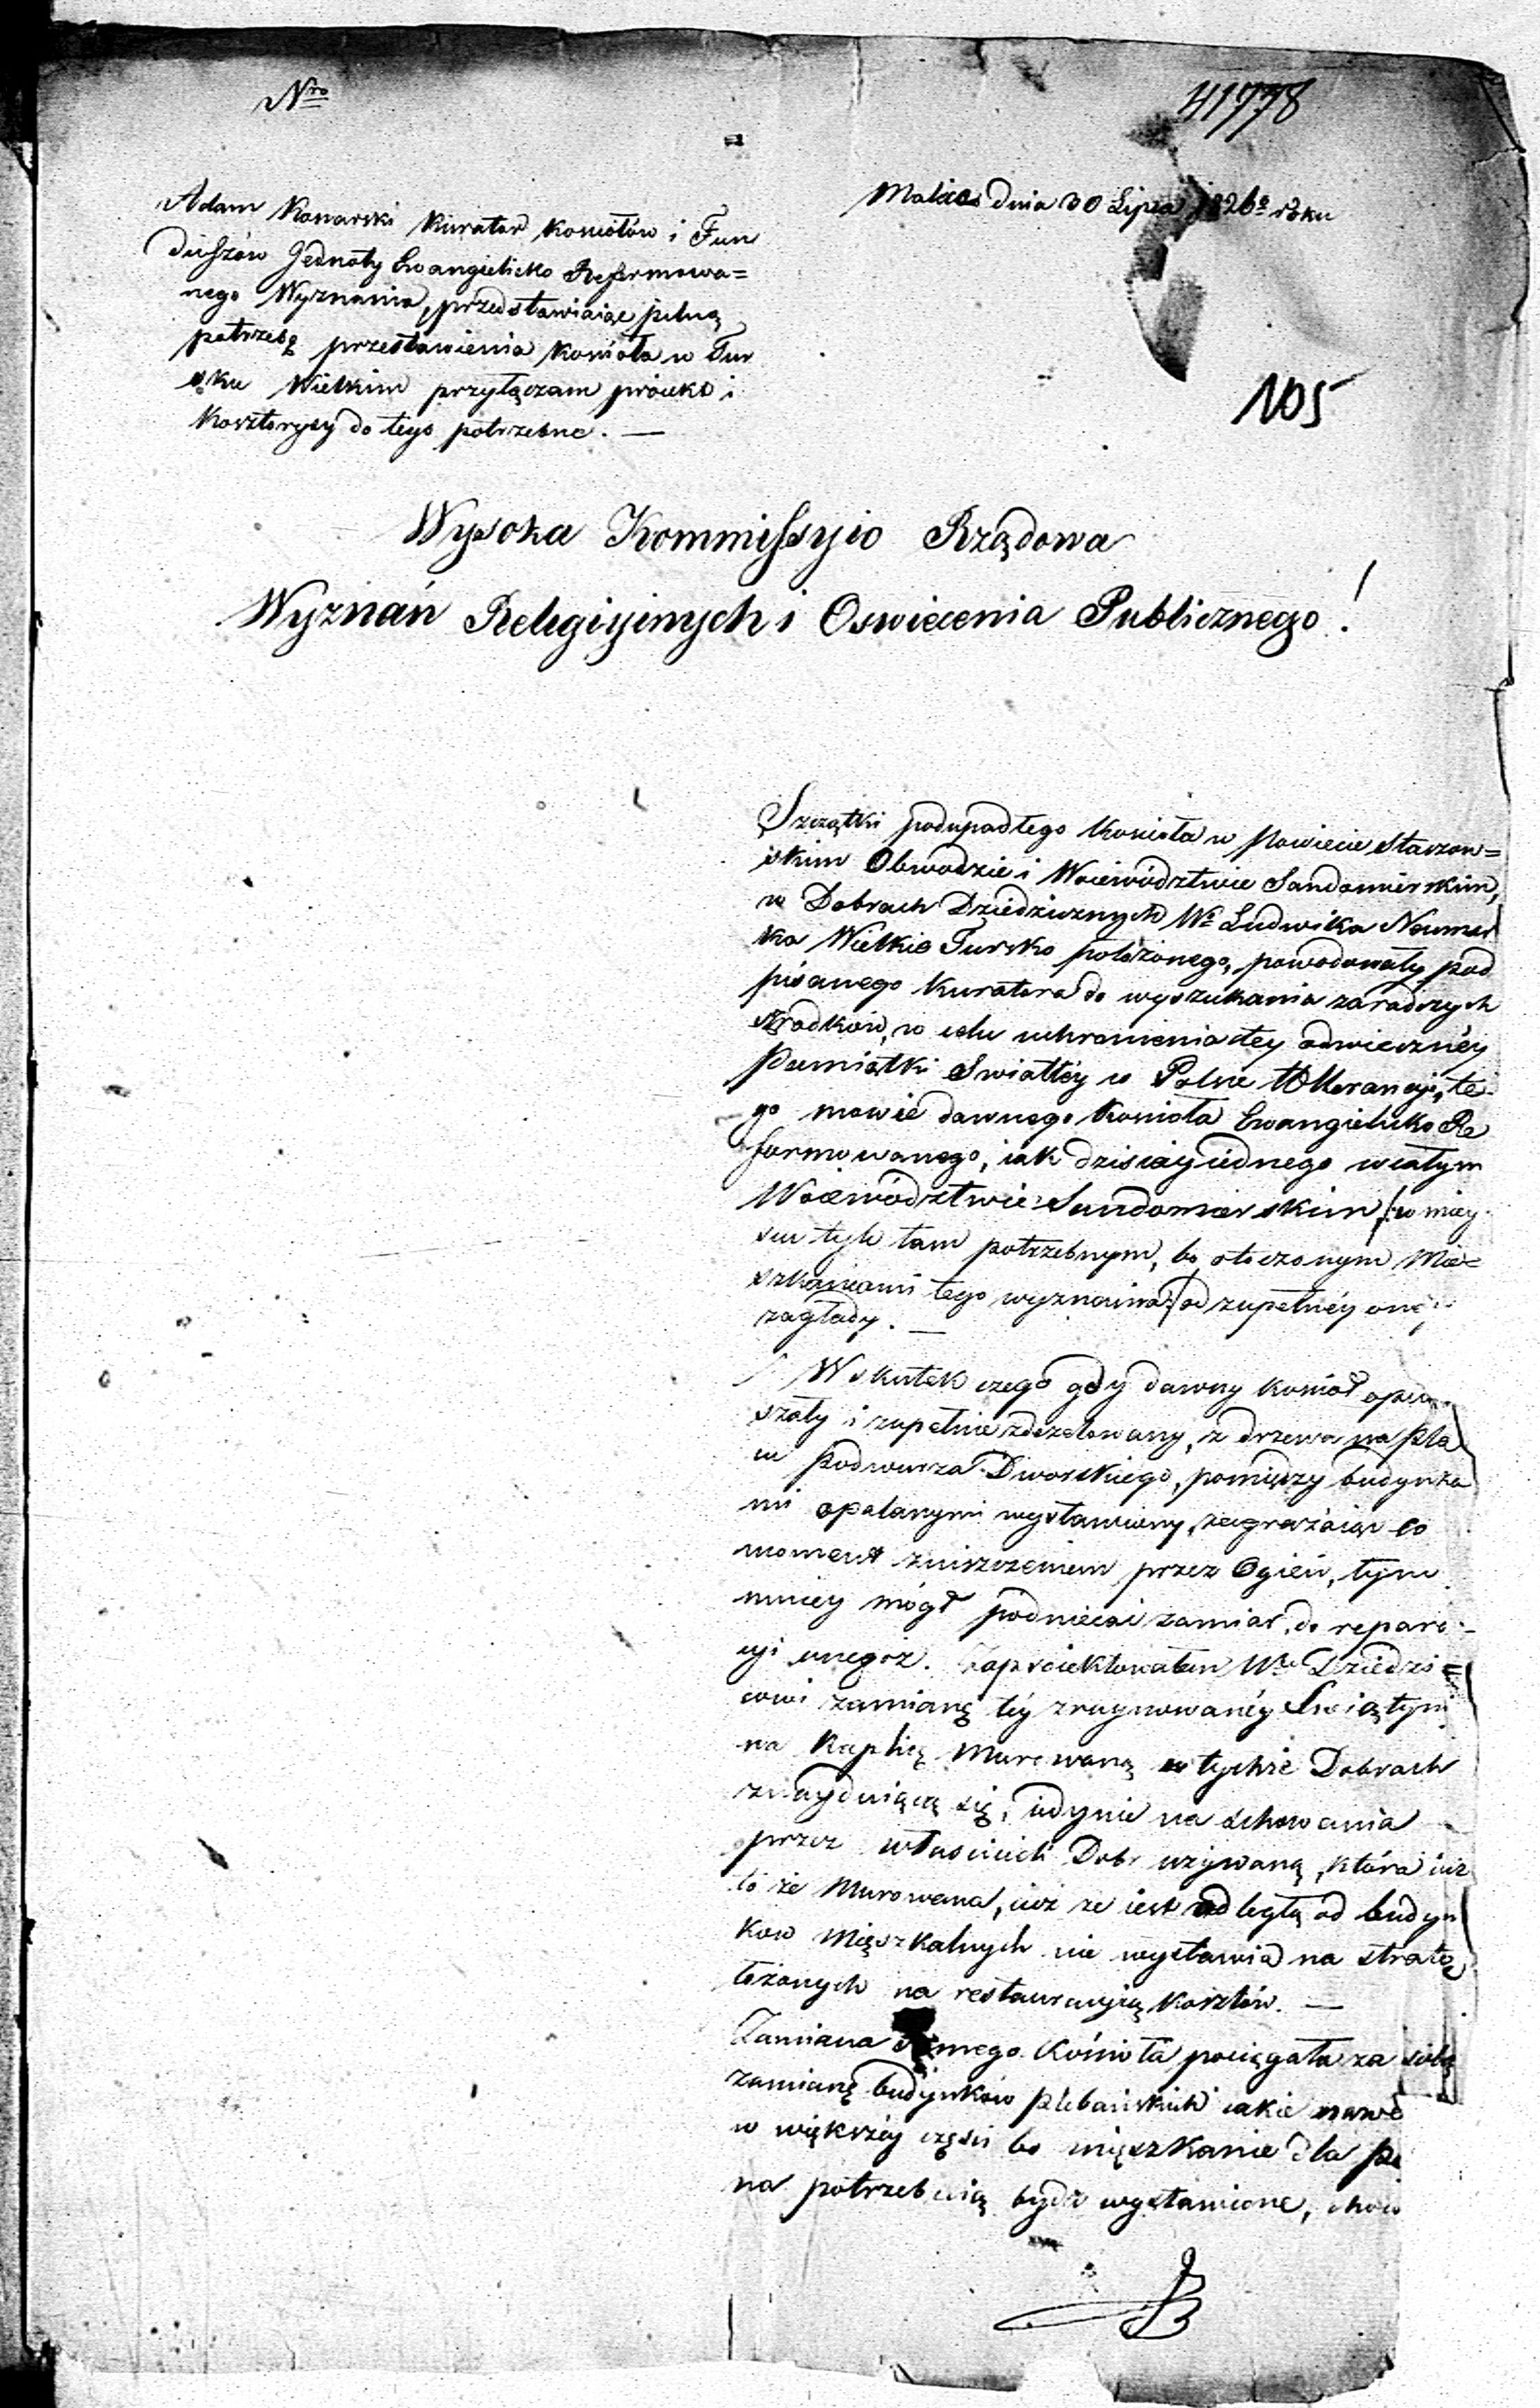 Nro
41778
Malice dnia 30 Lipca 1826o roku
105
Adam Konarski Kurator Kościołów i Fun
duszów Jednoty Ewangielicko Reformowa=
nego Wyznania, przedstawiaiąc pilną
potrzebę przestawienia Kościoła w Tur
sku Wielkim przyłączam proiekt i
Kosztorysy do tego potrzebne. —
Wysoka Kommissyio Rządowa
Wyznań Religiyinych i Oswiecenia Publicznego!
Szczątki podupadłego Kościoła w Powiecie Staszow=
skim Obwodzie i Woiewództwie Sandomirskim,
w Dobrach Dziedzicznych Wo Ludwika
ka Wielkie Tursko położonego, powodowały pod
pisanego Kuratora do wyszukania zaradczych
szrodków, w celu uchronienia tey odwiecznéy
Pamiątki Swiatłéy w Polsce Tolerancyi, te
go mowie dawnego Kościoła Ewangielicko Re
formowanego, iak dzisiay iednego w całym
Woiewództwie Sandomirskim /:w miey
scu tyle tam potrzebnym, bo otoczonym Mie=
szkańcami tego wyznania:/ od zupełnéy
zagłady. —
W skutek czego gdy dawny Kościoł opu
szały i zupełnie zdezelowany, z drzewa na Pla
cu Podworza Dworskiego, pomiędzy budynka
mi opalanymi wystawiony, zagrażaiąc co
moment zniszczeniem przez Ogień, tym
mniey mógł podniecać zamiar, do repara
cyi onegoż. Zaproiektowałem Wu Dziedzi=
cowi zamianę téy zruynowanéy Swiątyni
na Kaplicę Murowaną w tychże Dobrach
znayduiącą się, iedynie na schowania
przez właścicieli Dóbr używaną, która iuż
to że Murowana, iuż że iest odległą od budyn
kow Mięszkalnych nie wystawia na stratę
łożonych na restauracyią kosztów. —
Zamiana samego Kościoła pociągała za sobą
zamianę budynków plebańskich iakie nawe
w większéy części bo mięszkanie dla Ple
na potrzebuią bydź wystawione,